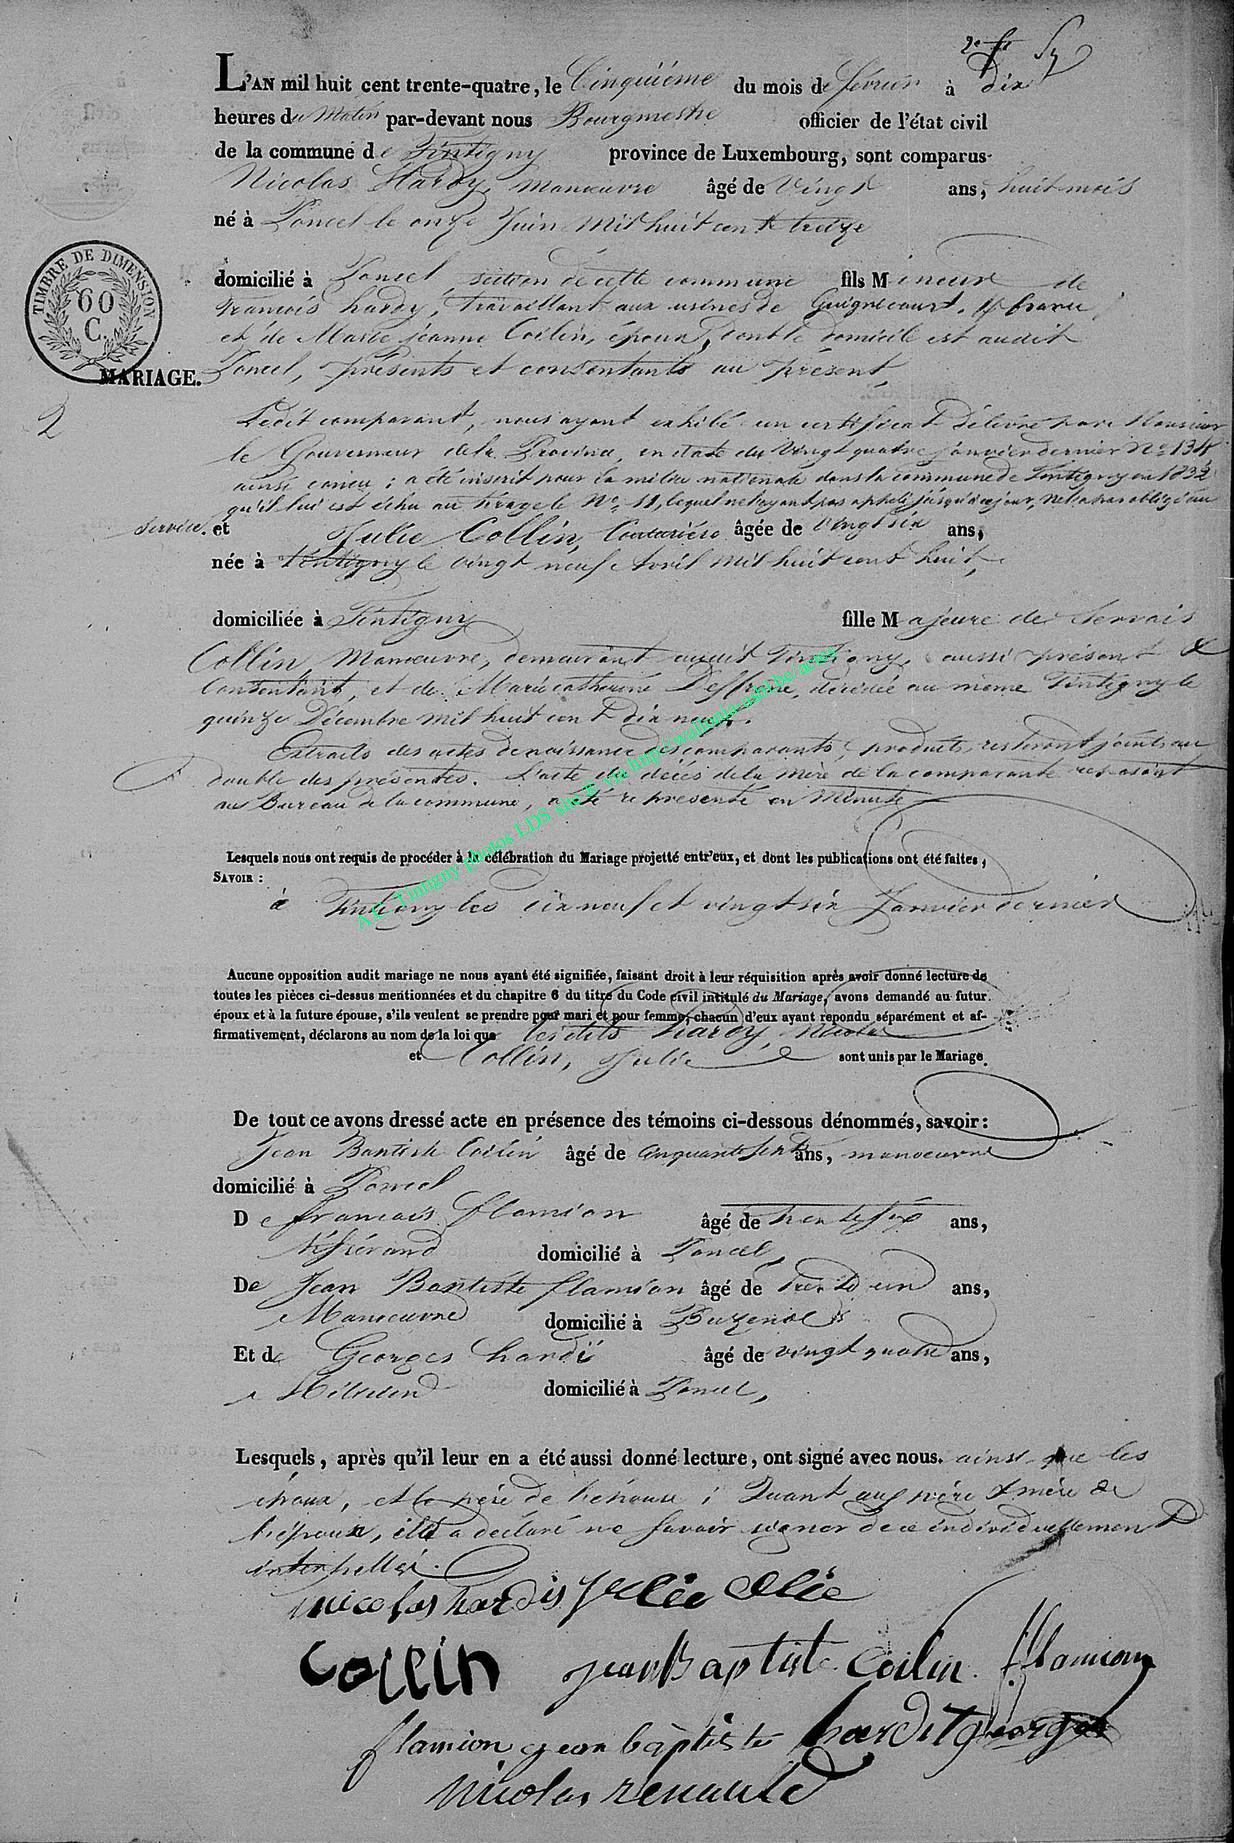 L'AN mil huit cent trente-quatre, le Cinquiéme du mois de février à dix
heures du Matin par-devant nous Bourgmestre officier de l'état civil
de la commune de Tintigny province de Luxembourg, sont comparus
Nicolas Hardy, manœuvre âgé de Vingt ans, huit mois
né à Poncel le onze Juin Mil huit cent treize
TIMBRE DE DIMENSION
60
C.
domicilié à Poncel section de cette commune fils Mineur de
françois hardy, travaillant aux usines de
et de Marie jeanne Coilin, époux, dont le domicile est audit
MARIAGE. Poncel, présents et consentants au présent,
2
Ledit comparant, nous ayant exhibé un certificat délivré par Monsieur
le Gouverneur de la Province, en date du Vingt quatre janvier dernier No 134
ainsi concu : a été inscrit pour la milice nationale dans la commune de Tintigny en 1832
qu'il lui est échu au tirage le No. 11, lequel ne l'ayant pas appelé jusqu'à ce jour, ne l'a pas obligé au
service. et Julie Collin, Couturière âgée de vingt six ans,
née à Tintigny le vingt neuf Avril Mil huit cent huit,
domiciliée à Tintigny fille Majeure de Servais
Collin, Manœuvre, demeurant audit Tintigny, aussi présent &
Consentant, et de Marie catherine décédée au même Tintigny le
quinze Décembre mil huit cent dix neuf.
Extraits des actes de naissance des comparants, produits, resteront joints au
double des présentes. L'acte de décès de la mère de la comparante reposant
au Bureau de la commune, a été représenté en Minute
A.C. Tintigny photos LDS sur via http://wallonia-asbl.be/actes
Lesquels nous ont requis de procéder à la célébration du Mariage projetté entr'eux, et dont les publications ont été faites,
SAVOIR :
à Tintigny les dix neuf et vingt six Janvier dernier
Aucune opposition audit mariage ne nous ayant été signifiée, faisant droit à leur réquisition après avoir donné lecture de
toutes les pièces ci-dessus mentionnées et du chapitre 6 du titre du Code civil intitulé du Mariage, avons demandé au futur
époux et à la future épouse, s'ils veulent se prendre pour mari et pour femme, chacun d'eux ayant repondu séparément et af-
firmativement, déclarons au nom de la loi que lesdits hardy, Nicolas
et Collin, Julie sont unis par le Mariage.
De tout ce avons dressé acte en présence des témoins ci-dessous dénommés, savoir :
Jean Baptiste Coilin âgé de cinquante sept ans, manoeuvre
domicilié à Poncel
De françois flamion âgé de trente six ans,
domicilié à Poncel,
De Jean Baptiste flamion âgé de trente un ans,
Manœuvre domicilié à Buzenol
Et de Georges hardÿ âgé de vingt quatre ans,
domicilié à Poncel,
Lesquels, après qu'il leur en a été aussi donné lecture, ont signé avec nous. ainsi que les
époux, et le père de l'épouse ; Quant aux père & mère de
l'époux, ils a déclaré ne savoir signer de ce individuellement
interpellés.
nicolas hardis Julie
collin jean Baptiste coilin. f flamion
flamion jean baptiste hardit george
nicolas renauld